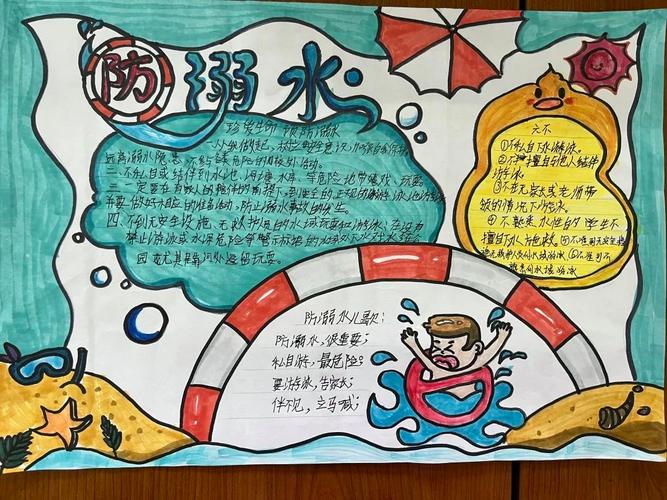 防溺水
珍爱生命 预防溺水
一、从我做起，树立安全意识，加强自我保护，
远离溺水隐患，不到
危险的地方处活动。
二、不私自或结伴到水池、
水库、等危险地带嬉戏、玩耍。
三、一定要在有救人员
陪伴的前提下，到安全的正规的游泳池游泳
并要做好下水前的准备活动，防止溺水事故的发生。
四、不到无安全设施、无救护人员的水域玩耍和游泳；在设有
禁止游泳或水深危险等警示标语的
园
尤其靠河处逗留玩耍。
六不
①不私自下水游泳。
②不擅自与他人结伴
游泳。
③不在无家长或老师带
领的情况下游泳。
④不熟悉水性的学生不
擅自下水施救。⑤不准到无安全设
施无救护人员的水域游泳⑥不准到不
熟悉的水域游泳
防溺水儿歌：
防溺水，很重要；
私自游，最危险；
要游泳，告家长；
伴不见，立马喊；